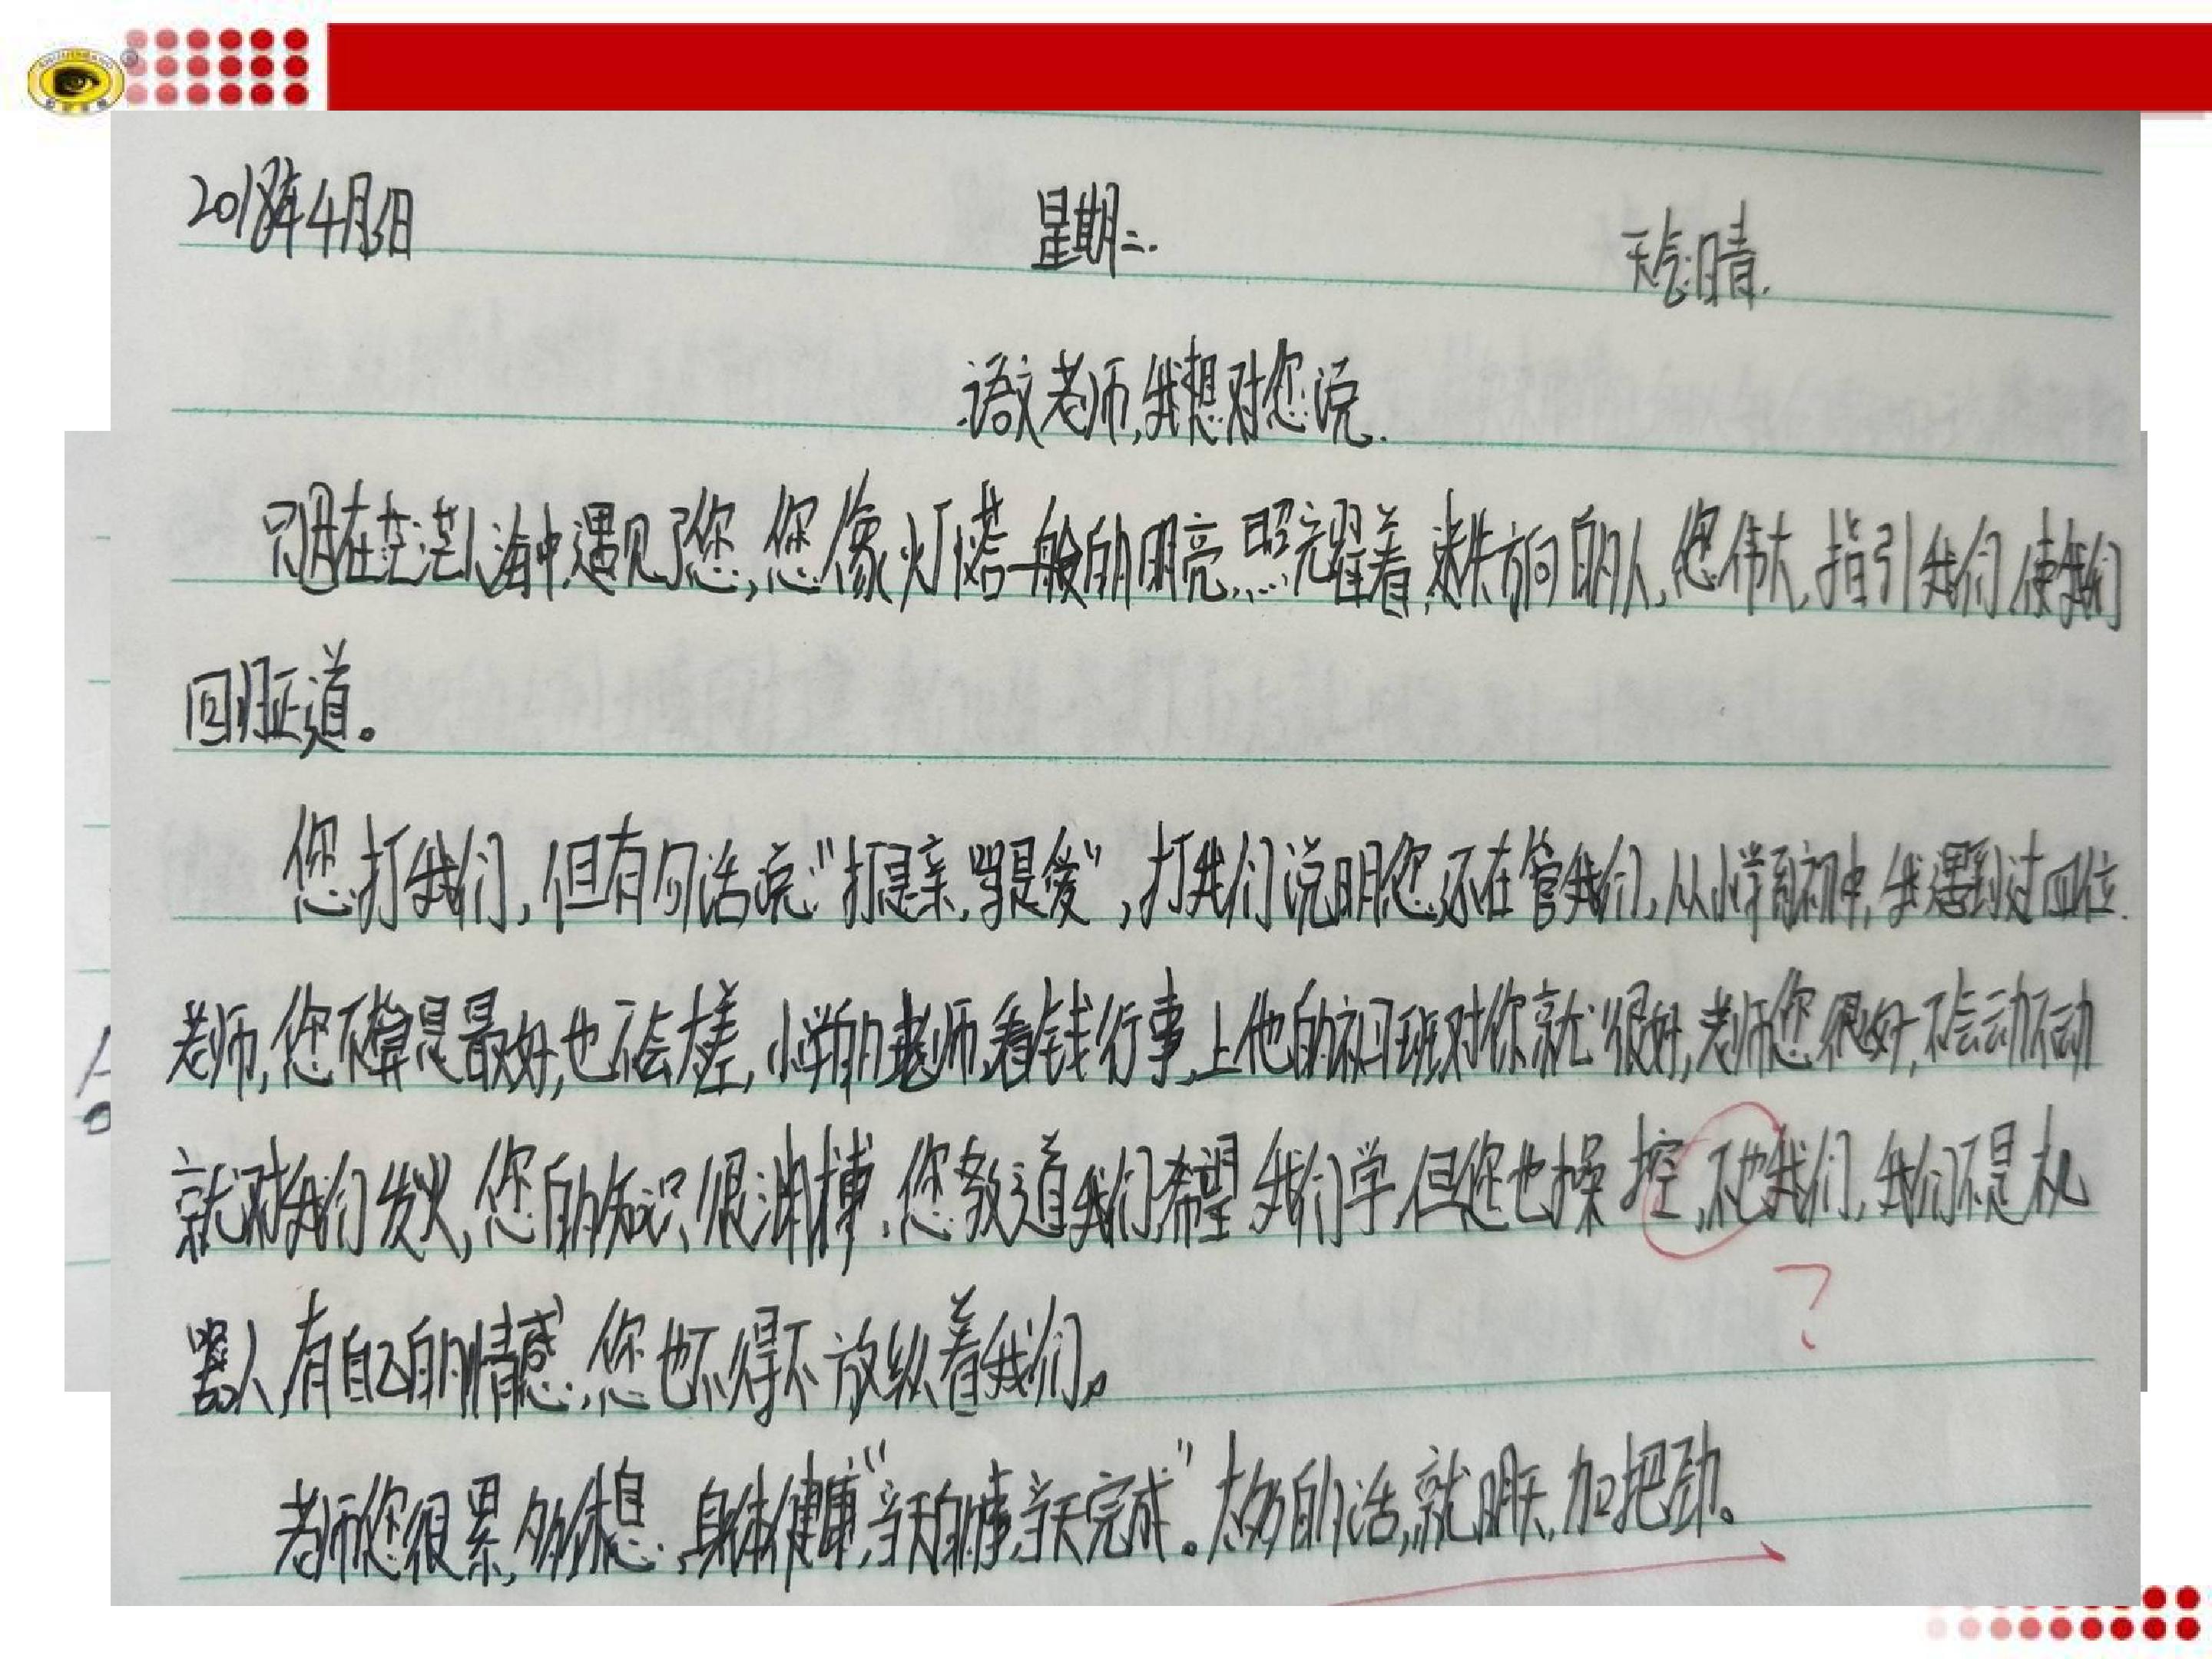 2018年4月3日 星期二. 天气:晴.
语文老师,我想对您说.
只因在茫茫人海中遇见了您,您像灯塔一般的明亮,照亮耀着,迷失方向的人,您伟大,指引我们,使我们
回归正道。
您打我们,但有句话说:"打是亲,骂是爱",打我们说明您还在管我们,从小学到初中,我遇到过四位
老师,您不算是最好,也不会太差,小学的老师,看钱行事,上他的补习班对你就很好,老师您很好,不会动不动
就对我们发火,您的知识很渊博,您教道我们,希望我们学,但您也操控,不他我们,我们不是机
器人,有自己的情感,您也不得不放纵着我们。
老师您很累,多休息,身体健康,"当天的事,当天完成"。太多的话,就明天,加把劲。
?